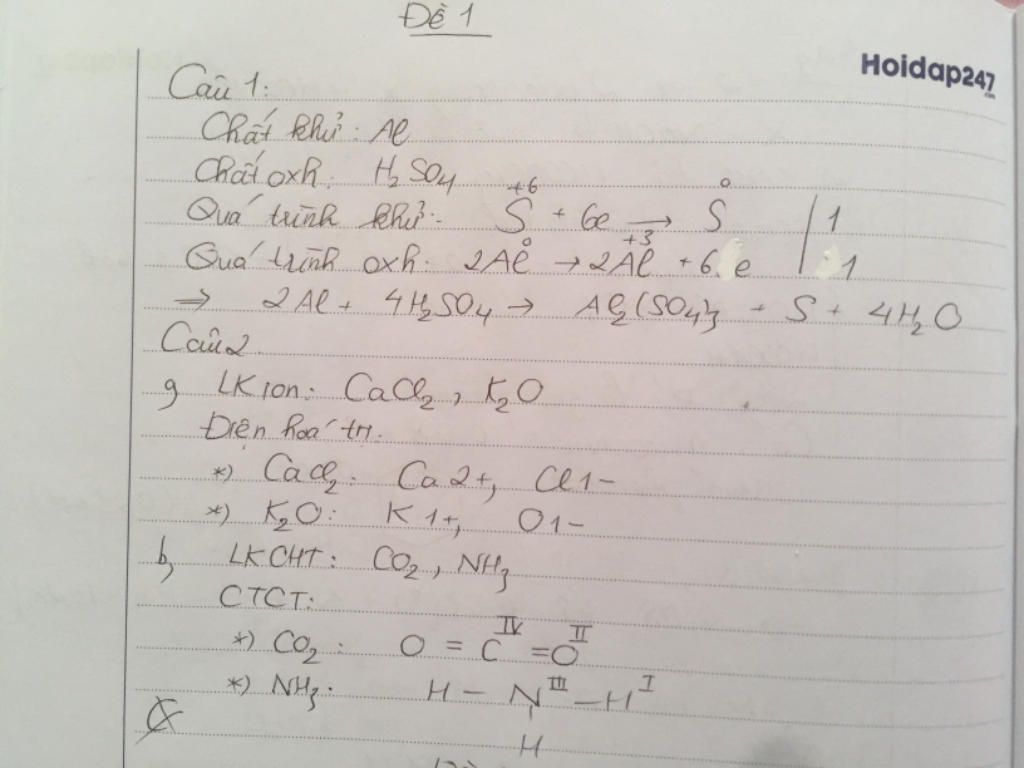 Đề 1
Hoidap247
.com
Câu 1:
Chất khử: Al
Chất oxh: H₂SO₄
Quá trình khử: S⁺⁶ + 6e → S⁰ | 1
Quá trình oxh: 2Al⁰ → 2Al⁺³ + 6e | 1
⇒ 2Al + 4H₂SO₄ → Al₂(SO₄)₃ + S + 4H₂O
Câu 2.
a, LK ion: CaCl₂, K₂O
Điện hoá trị:
*) CaCl₂: Ca 2+, Cl 1-
*) K₂O: K 1+, O 1-
b, LKCHT: CO₂, NH₃
CTCT:
*) CO₂: O = C^IV = O^II
*) NH₃: H - N^III - H^I
H